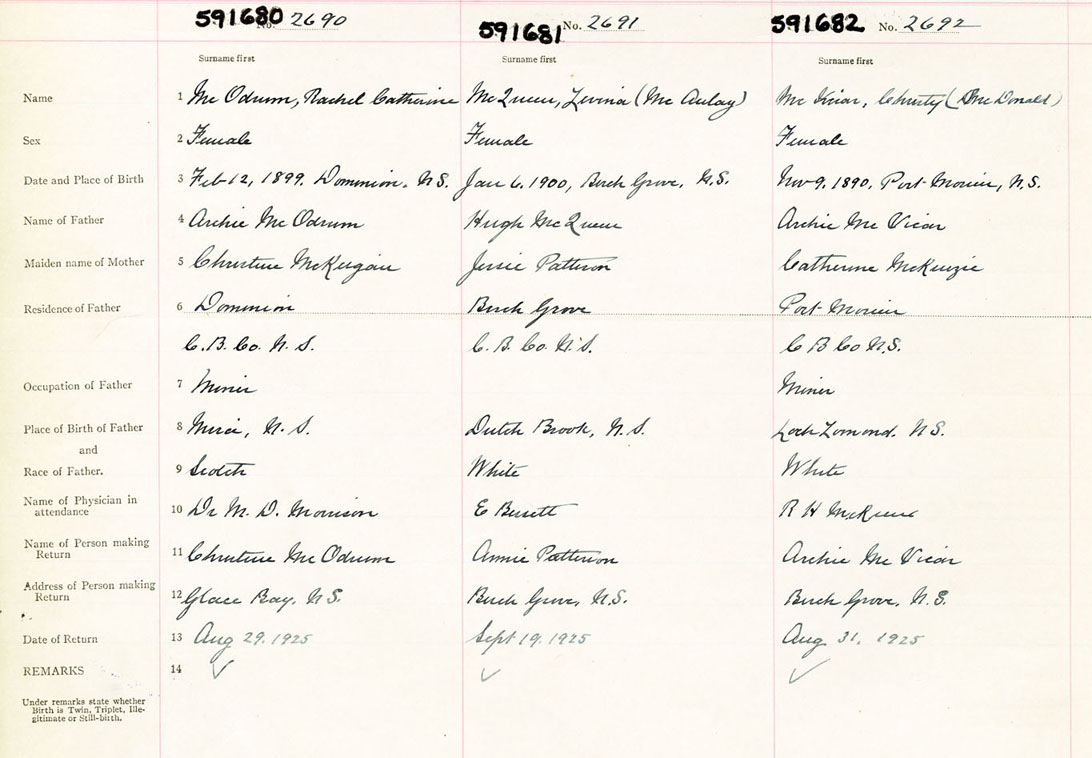 591680 No. 2690 591681 No. 2691 591682 No. 2692
Surname first Surname first Surname first
Name 1 Mc Odrum, Rachel Catherine McQueen, Levina (Mc Aulay) Mc Vicar, Christy (McDonald)
Sex 2 Female Female Female
Date and Place of Birth 3 Feb 12, 1899. Dominion. N.S. Jan 6. 1900, Birch Grove, N.S. Nov 9. 1890, Port Morien, N.S.
Name of Father 4 Archie Mc Odrum Hugh McQueen Archie Mc Vicar
Maiden name of Mother 5 Christine McKeigan Jessie Patterson Catherine McKenzie
Residence of Father 6 Dominion Birch Grove Port Morien
C.B. Co. N. S. C. B. Co. N. S. C B Co N.S.
Occupation of Father 7 Miner Miner
Place of Birth of Father 8 Mira, N. S. Dutch Brook, N. S. Loch Lomond. N S.
and
Race of Father. 9 Scotch White White
Name of Physician in
attendance 10 Dr M. D. Morrison E R H
Name of Person making
Return 11 Christine Mc Odrum Annie Patterson Archie Mc Vicar
Address of Person making
Return 12 Glace Bay, N S. Birch Grove, N.S. Birch Grove, N. S.
Date of Return 13 Aug 29. 1925 Sept 19. 1925 Aug 31. 1925
REMARKS 14
Under remarks state whether
Birth is Twin, Triplet, Ille-
gitimate or Still-birth.